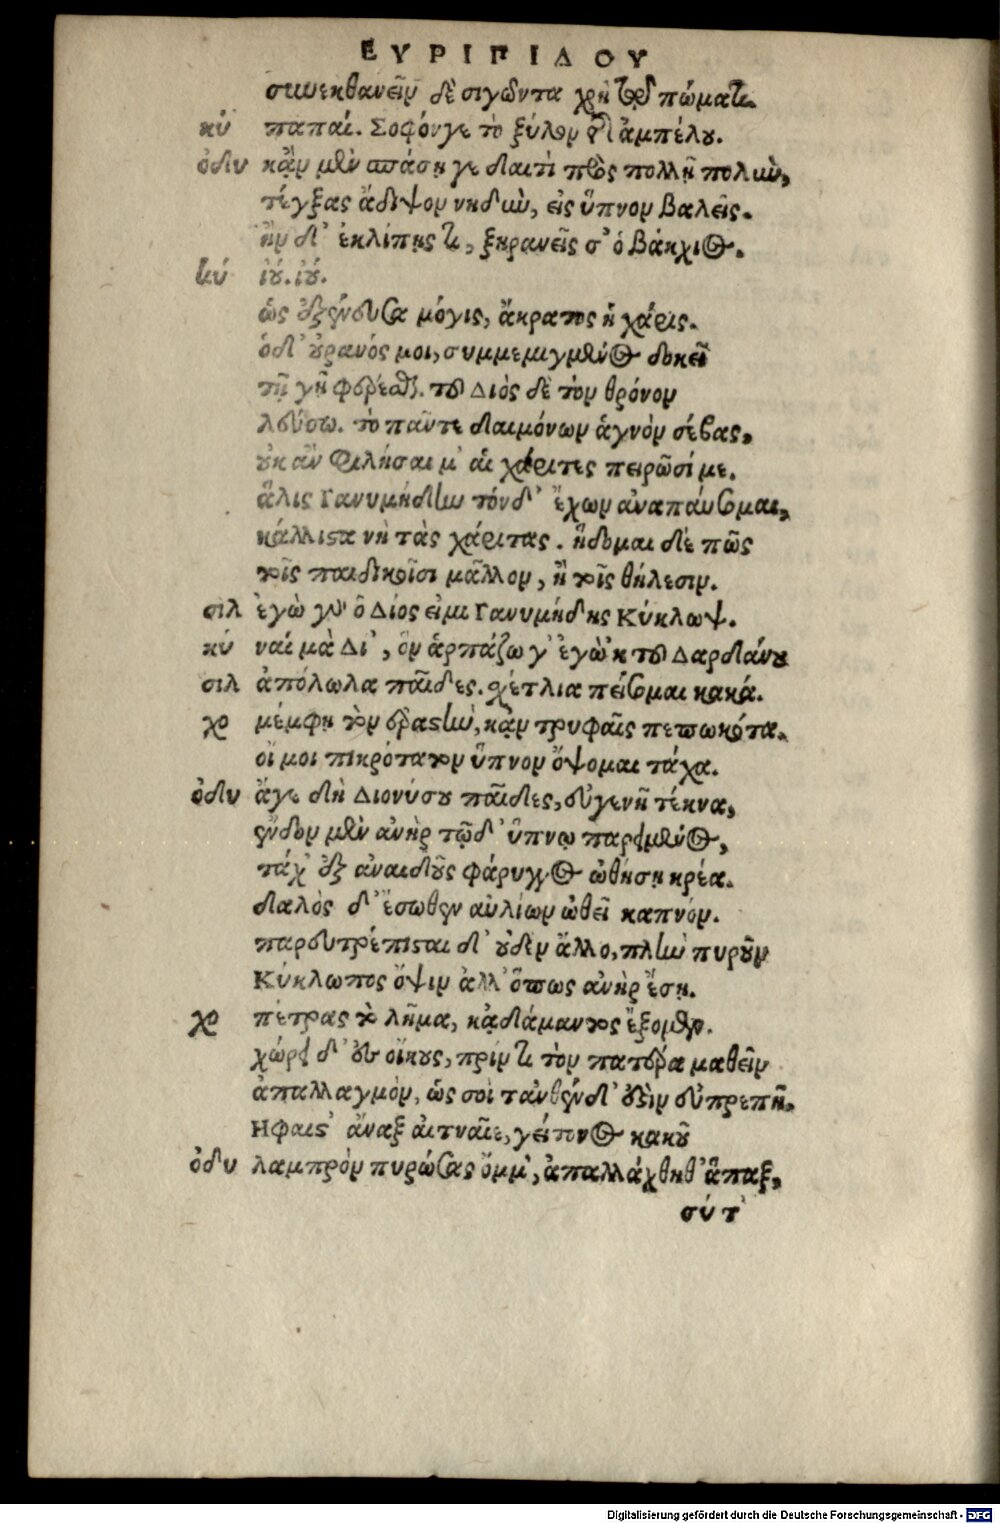 ΕΥΡΙΠΙΔΟΥ
συνεκθανεῖν δὲ σιγῶντα χρὴ τῷ πώματι.
κύ παπαί. Σοφόνγε τὸ ξύλον τῆς ἀμπέλου.
ὀδυ κἂν μὲν σπάσῃ γε δαιτὶ πρὸς πολλῇ πολὺν,
τέγξας ἄδιψον νηδὺν, εἰς ὕπνον βαλεῖς.
ἢν δ' ἐκλίπῃς τι, ξηρανεῖς σ' ὁ βάκχιος.
κύ ἰού. ἰού.
ὡς ἐξένευσα μόγις, ἄκρατος ἡ χάρις.
ὁ δ' οὐρανός μοι, συμμεμιγμένος δοκεῖ
τῇ γῇ φέρεσθαι. τοῦ Διὸς δὲ τὸν θρόνον
λεύσω. τὸ πᾶν τε δαιμόνων ἁγνὸν σέβας,
οὐκ ἂν φιλήσαι μ' αἱ χάριτες πειρῶσί με.
ἅλις Γανυμήδην τόνδ' ἔχων ἀναπαύσομαι,
κάλλιστα νὴ τὰς χάριτας. ἥδομαι δέ πως
τοῖς παιδικοῖσι μᾶλλον, ἢ τοῖς θήλεσιν.
σιλ ἐγὼ γὰρ ὁ Δίος εἰμι Γανυμήδης Κύκλωψ.
κύ ναί μὰ Δί', ὃν ἁρπάζω γ' ἐγὼ 'κ τοῦ Δαρδάνου
σιλ ἀπόλωλα παῖδες. σχέτλια πείσομαι κακά.
χο μέμφῃ τὸν ἐραστὴν, κἂν τρυφαῖς πεπωκότα.
οἴ μοι πικρότατον ὕπνον ὄψομαι τάχα.
ὀδυ ἄγε δὴ Διονύσου παῖδες, εὐγενῆ τέκνα,
ἔνδον μὲν ἀνὴρ τῷδ' ὕπνῳ παρειμένος,
τάχ' ἐξ ἀναιδοῦς φάρυγγος ὠθήσῃ κρέα.
δαλὸς δ' ἔσωθεν αὐλίων ὠθεῖ καπνόν.
παρευτρέπισται δ' οὐδὲν ἄλλο, πλὴν πυροῦν
Κύκλωπος ὄψιν ἀλλ' ὅπως ἀνὴρ ἔσῃ.
χο πέτρας τὸ λῆμα, κἀδάμαντος ἕξομεν.
χώρει δ' ἐς οἴκους, πρίν τι τὸν πατέρα μαθεῖν
ἀπαλλαγμὸν, ὥς σοὶ τἀνθένδ' ἐστὶν εὐπρεπῆ.
Ηφαιστ' ἄναξ αἰτναῖε, γείτονος κακοῦ
ὀδυ λαμπρὸν πυρώσας ὄμμ', ἀπαλλάχθηθ' ἅπαξ,
σύ τ'
Digitalisierung gefördert durch die Deutsche Forschungsgemeinschaft - DFG